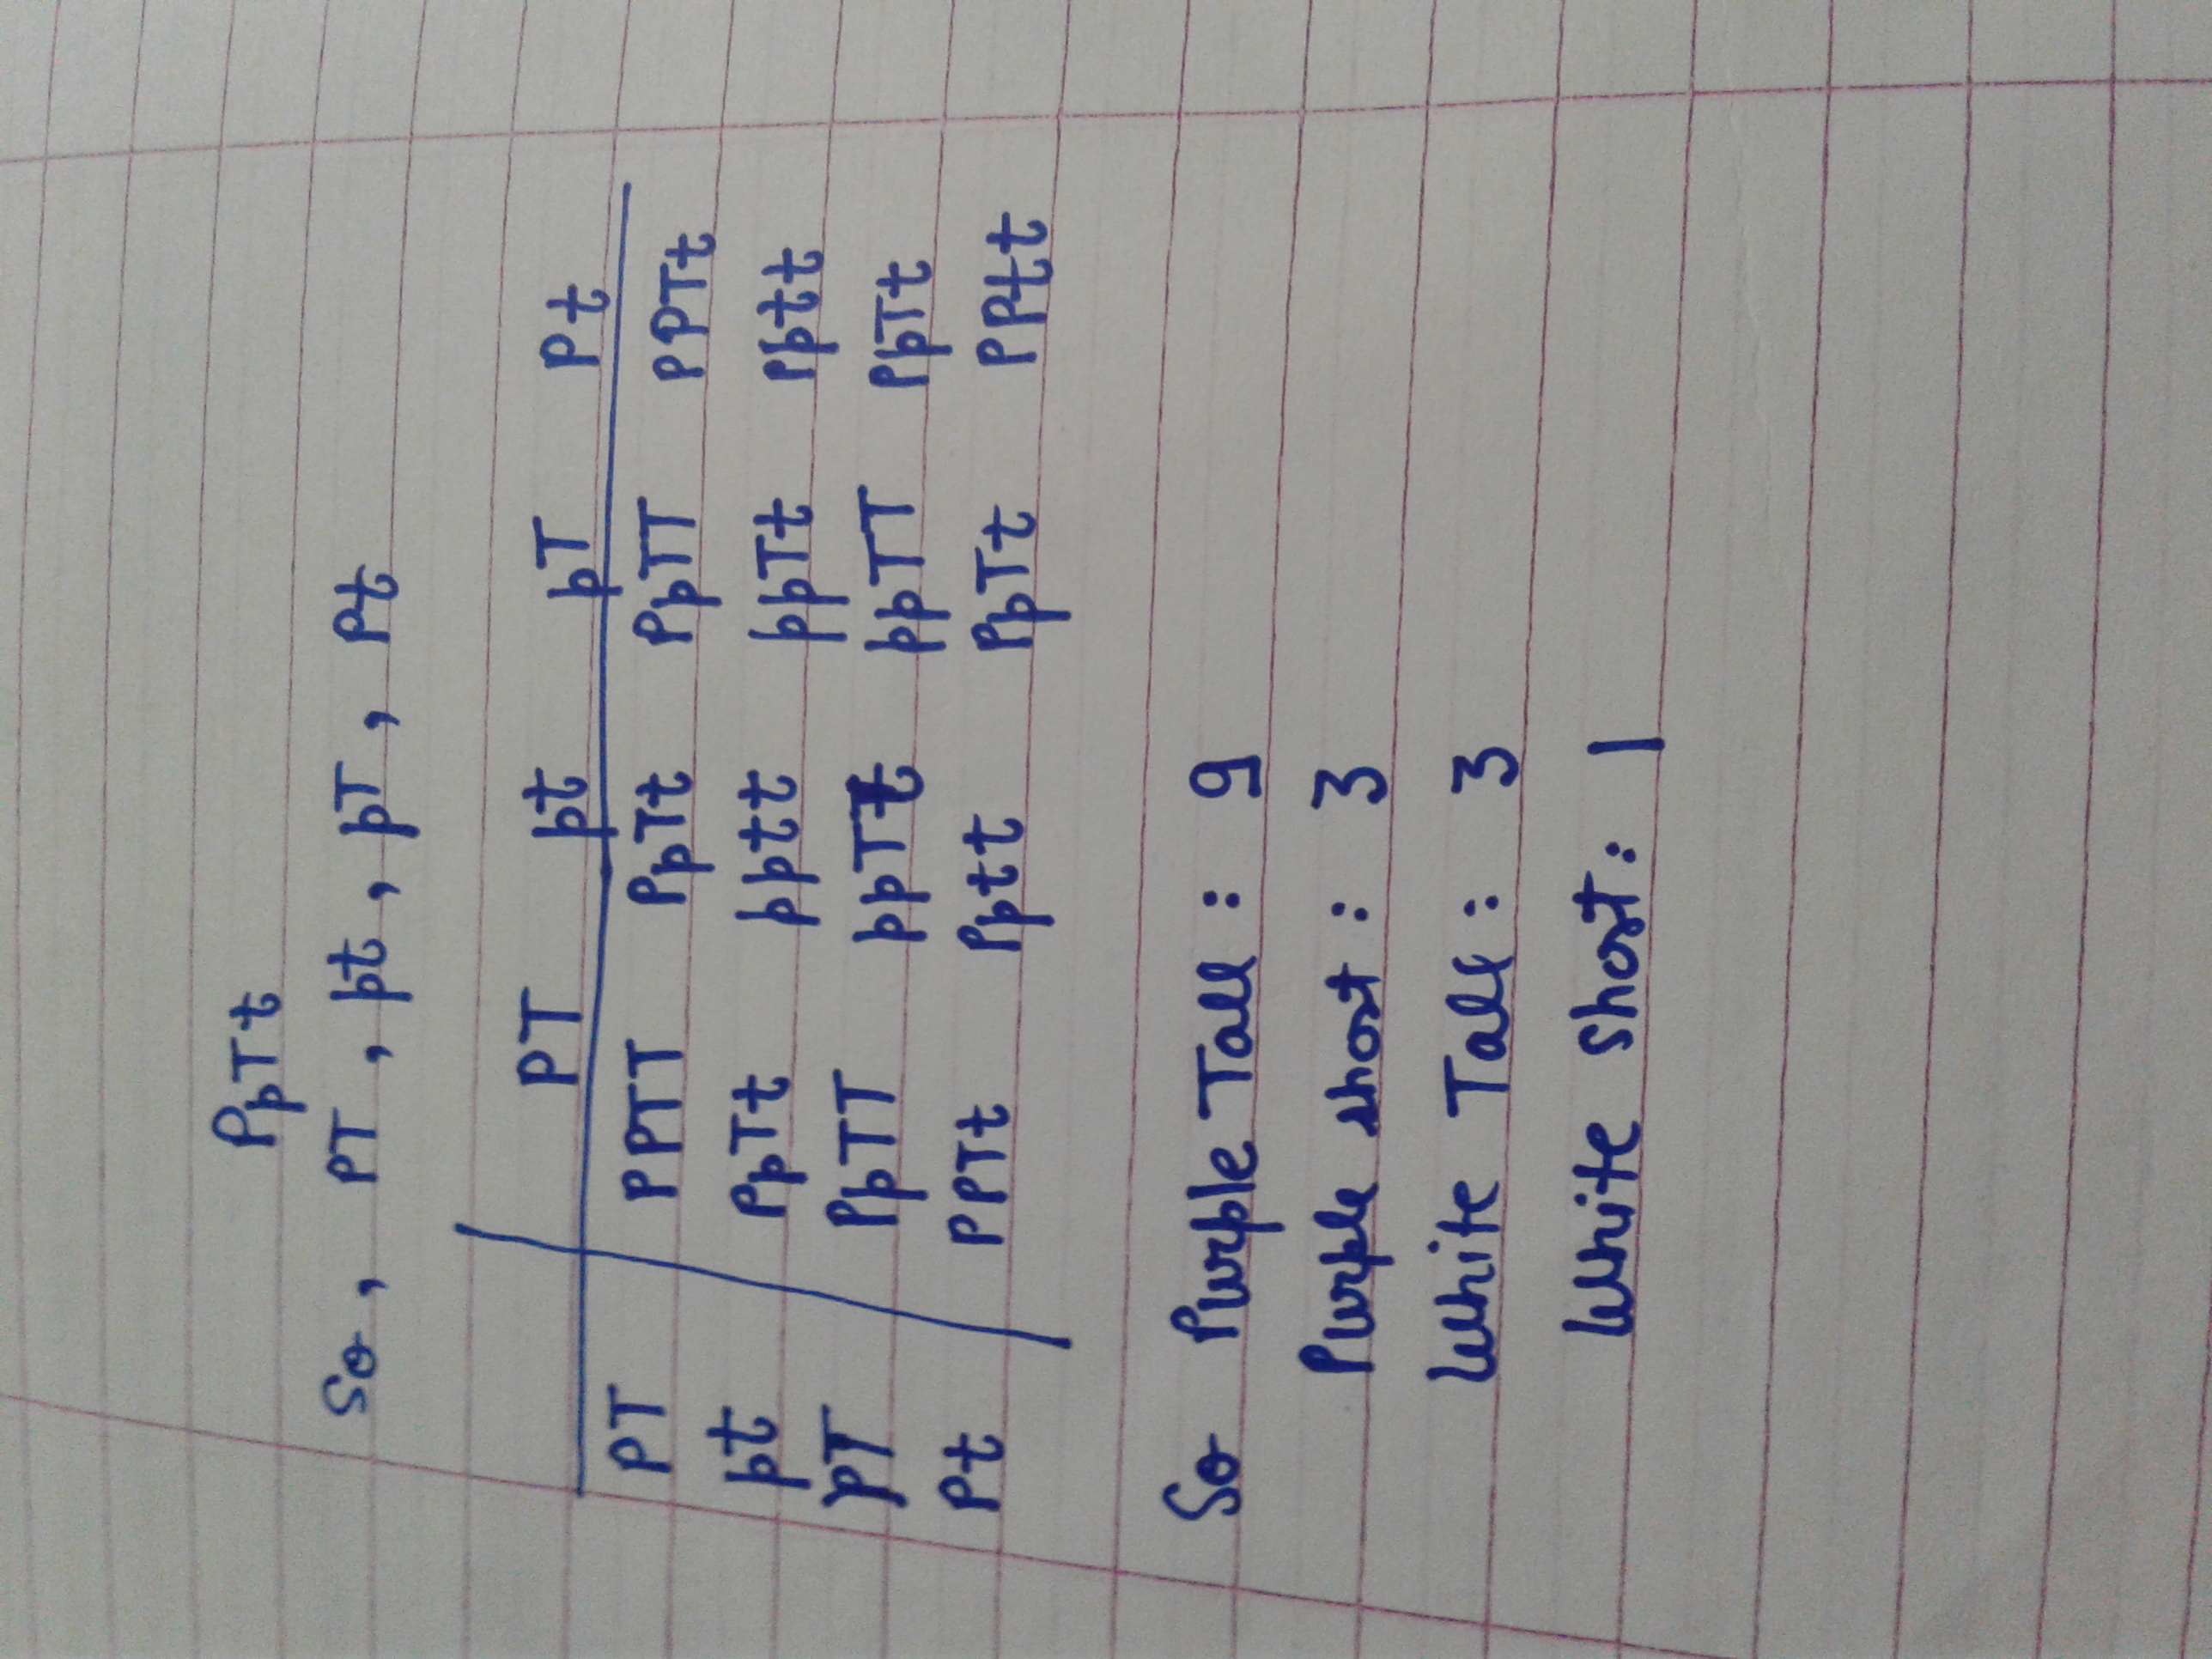 PpTt
So, PT, pt, pT, Pt
PT pt pT Pt
PT PPTT PpTt PpTT PPTt
pt PpTt pptt ppTt Pptt
pT PpTT ppTt ppTT PpTt
Pt PPTt Pptt PpTt PPtt
So Purple Tall : 9
Purple short : 3
White Tall : 3
White Short : 1